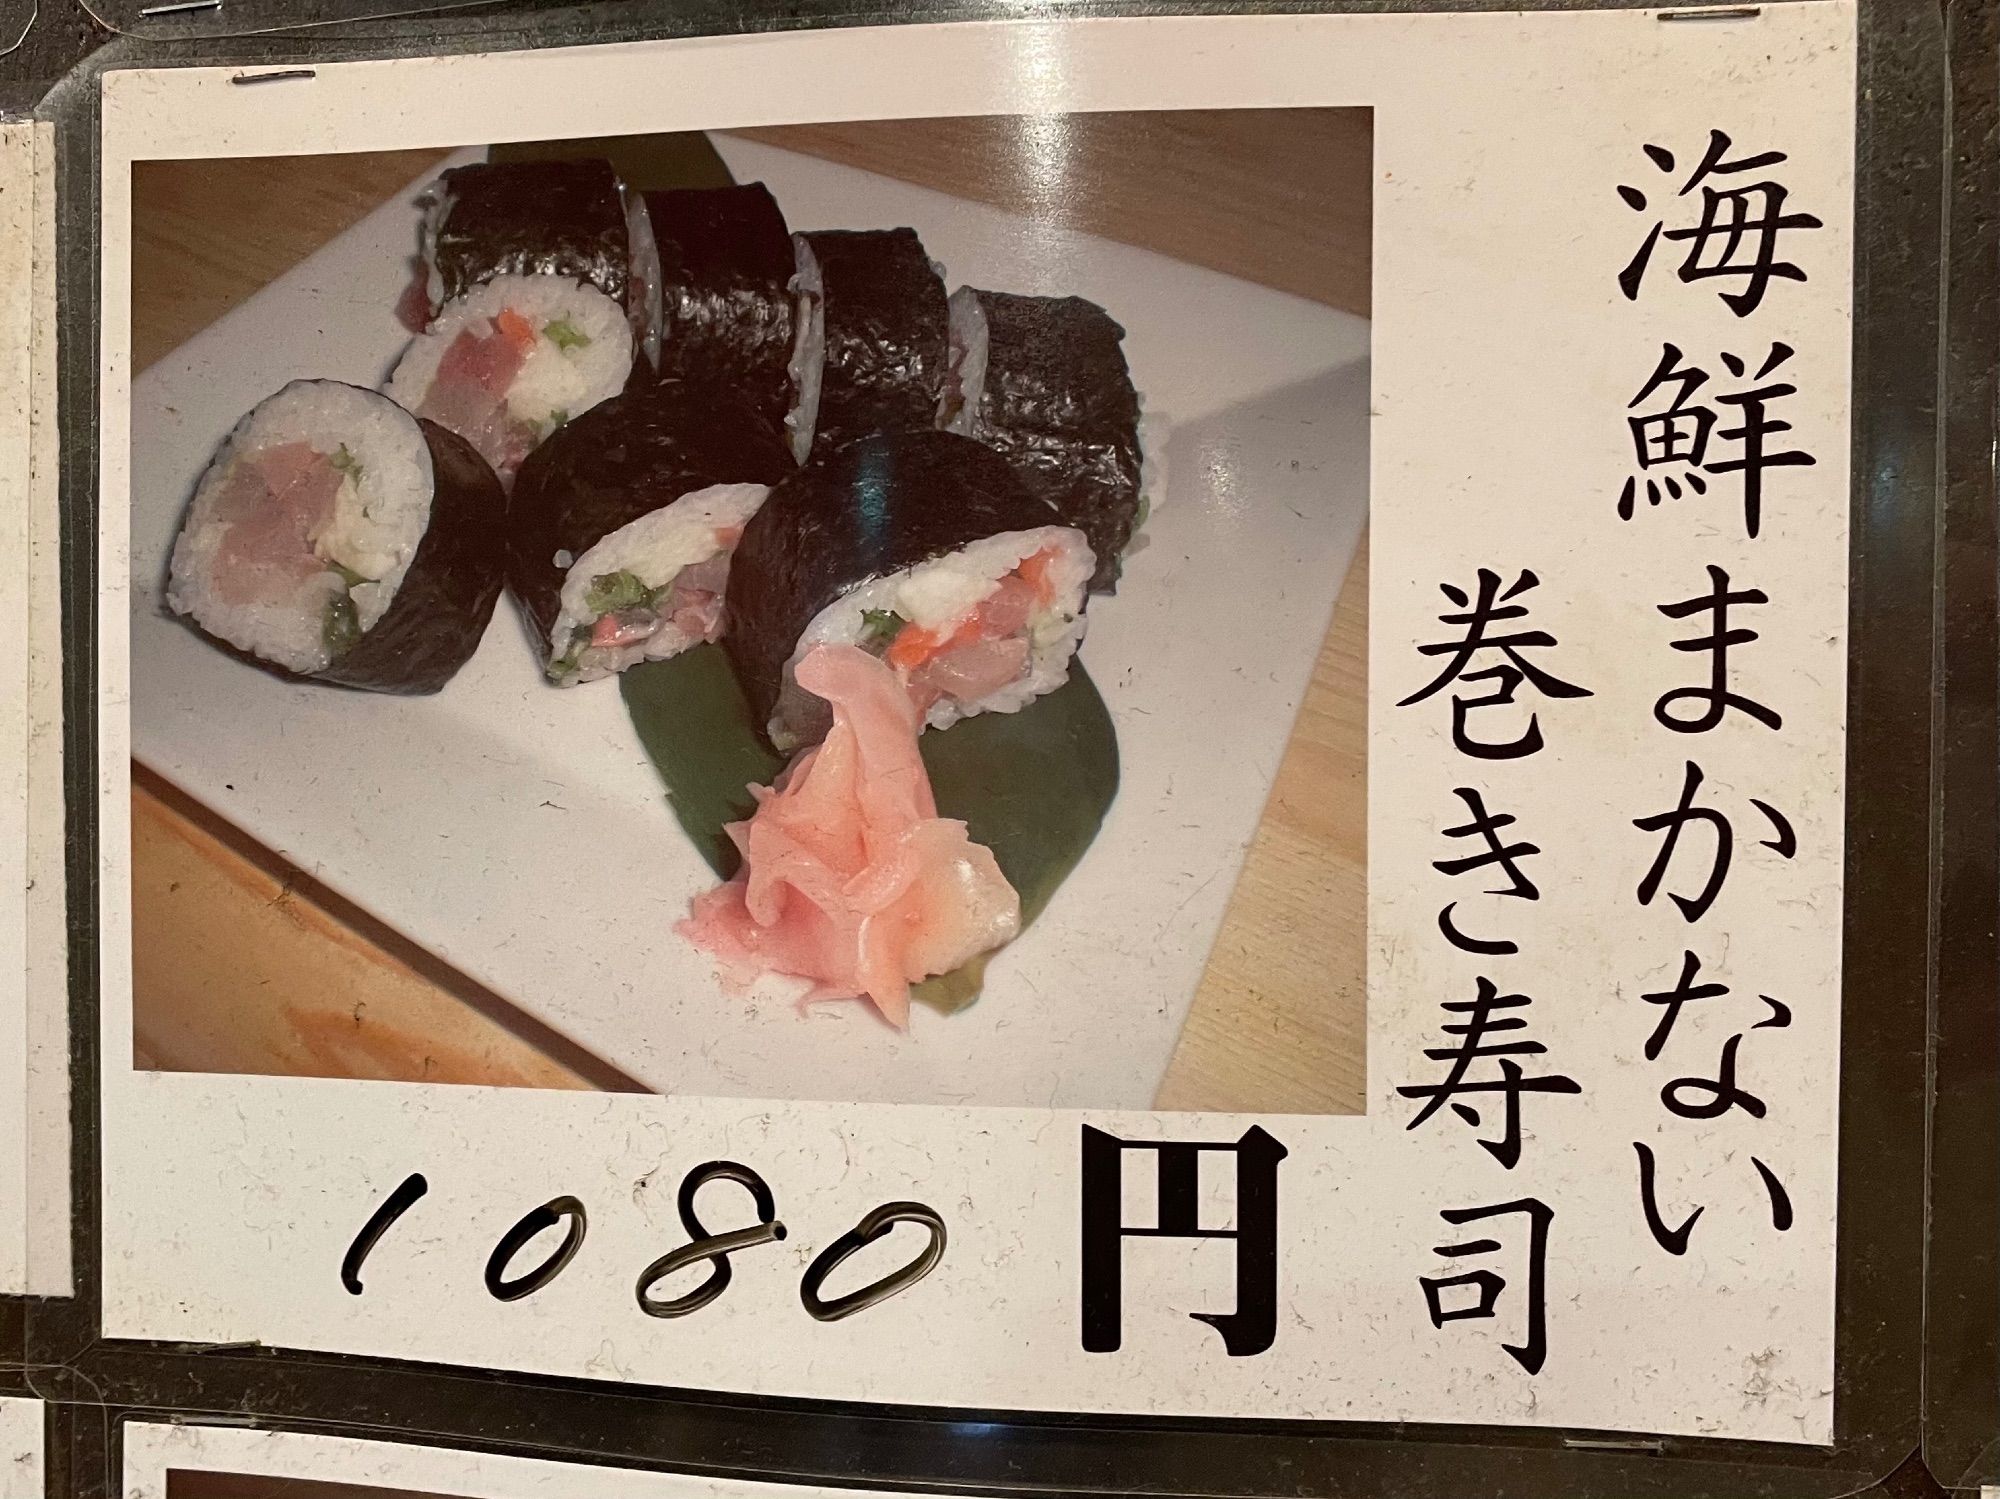 海鮮まかない
巻き寿司
1080円